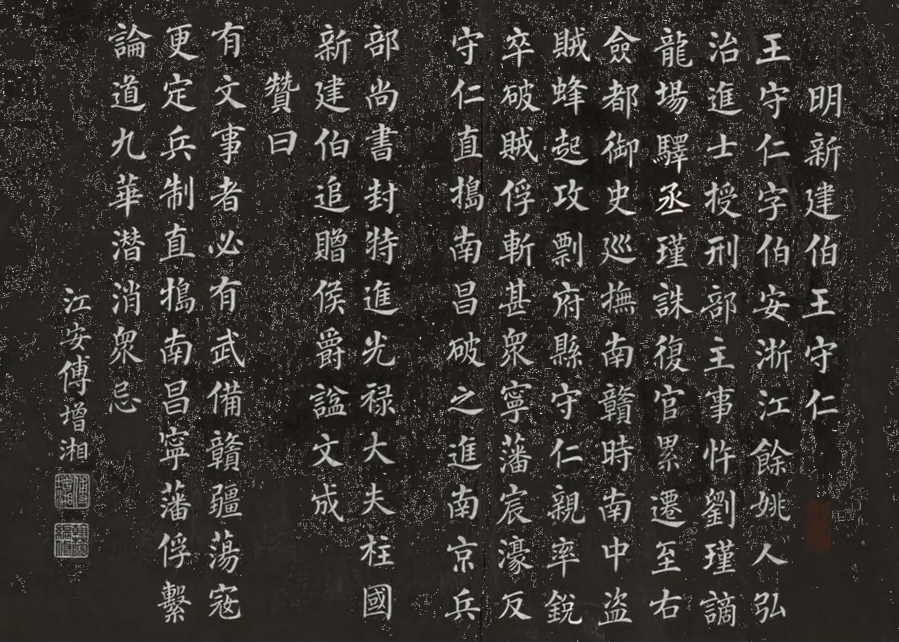 明新建伯王守仁
王守仁字伯安浙江餘姚人弘
治進士授刑部主事忤劉瑾謫
龍場驛丞瑾誅復官累遷至右
僉都御史巡撫南贛時南中盜
賊蜂起攻剽府縣守仁親率銳
卒破賊俘斬甚眾寧藩宸濠反
守仁直搗南昌破之進南京兵
部尚書封特進光祿大夫柱國
新建伯追贈侯爵諡文成
贊曰
有文事者必有武備贛疆蕩寇
更定兵制直搗南昌寧藩俘繫
論道九華潛消眾忌
江安傅增湘